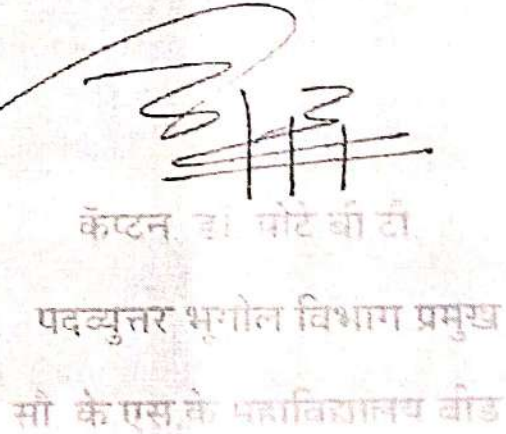 कॅप्टन. डॉ. पोटे बी टी.
पदव्युत्तर भूगोल विभाग प्रमुख
सौ के एस.के महाविद्यालय बीड